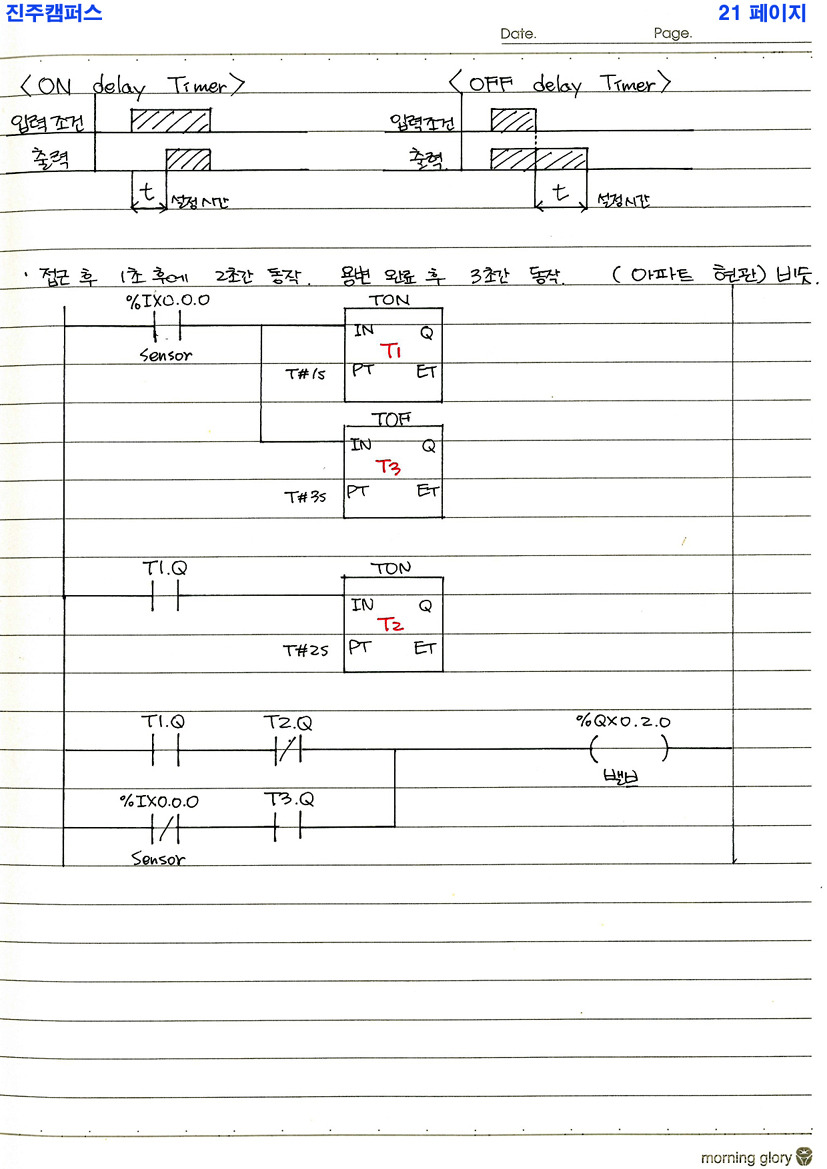 진주캠퍼스 21 페이지
Date. Page.
<ON delay Timer> <OFF delay Timer>
입력조건 입력조건
출력 출력
t 설정시간 t 설정시간
· 접근 후 1초 후에 2초간 동작. 용변 완료 후 3초간 동작. (아파트 현관) 비슷.
%IX0.0.0 TON
IN Q
Sensor T1
T#1s PT ET
TOF
IN Q
T3
T#3s PT ET
T1.Q TON
IN Q
T2
T#2s PT ET
T1.Q T2.Q %QX0.2.0
밸브
%IX0.0.0 T3.Q
Sensor
morning glory